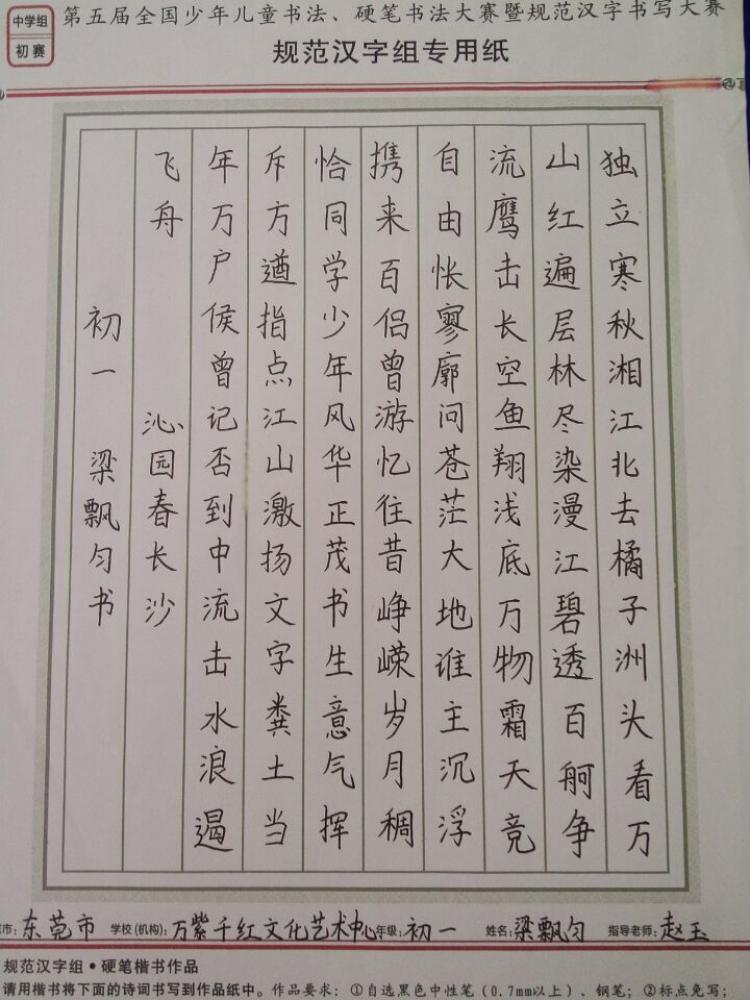 中学组
初赛
第五届全国少年儿童书法、硬笔书法大赛暨规范汉字书写大赛
规范汉字组专用纸
独立寒秋湘江北去橘子洲头看万
山红遍层林尽染漫江碧透百舸争
流鹰击长空鱼翔浅底万物霜天竞
自由怅寥廓问苍茫大地谁主沉浮
携来百侣曾游忆往昔峥嵘岁月稠
恰同学少年风华正茂书生意气挥
斥方遒指点江山激扬文字粪土当
年万户侯曾记否到中流击水浪遏
飞舟 沁园春长沙
初一 梁飘匀书
市：东莞市 学校(机构)：万紫千红文化艺术中心 年级：初一 姓名：梁飘匀 指导老师：赵玉
规范汉字组·硬笔楷书作品
请用楷书将下面的诗词书写到作品纸中。作品要求：①自选黑色中性笔（0.7mm以上）、钢笔；②标点免写；